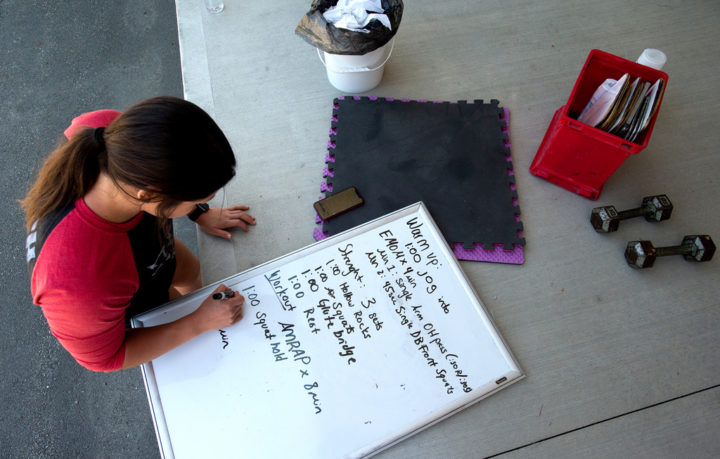 Warm up:
1:00 Jog into
EMOM x 4min
Min 1: Single Arm OH press (:30R/:30L)
Min 2: 45sec Single DB Front Squats
Strength: 3 sets
1:00 Hollow Rocks
1:00 Air Squats
1:00 Glute bridge
1:00 Rest
Workout AMRAP x 8min
1:00 Squat hold
min